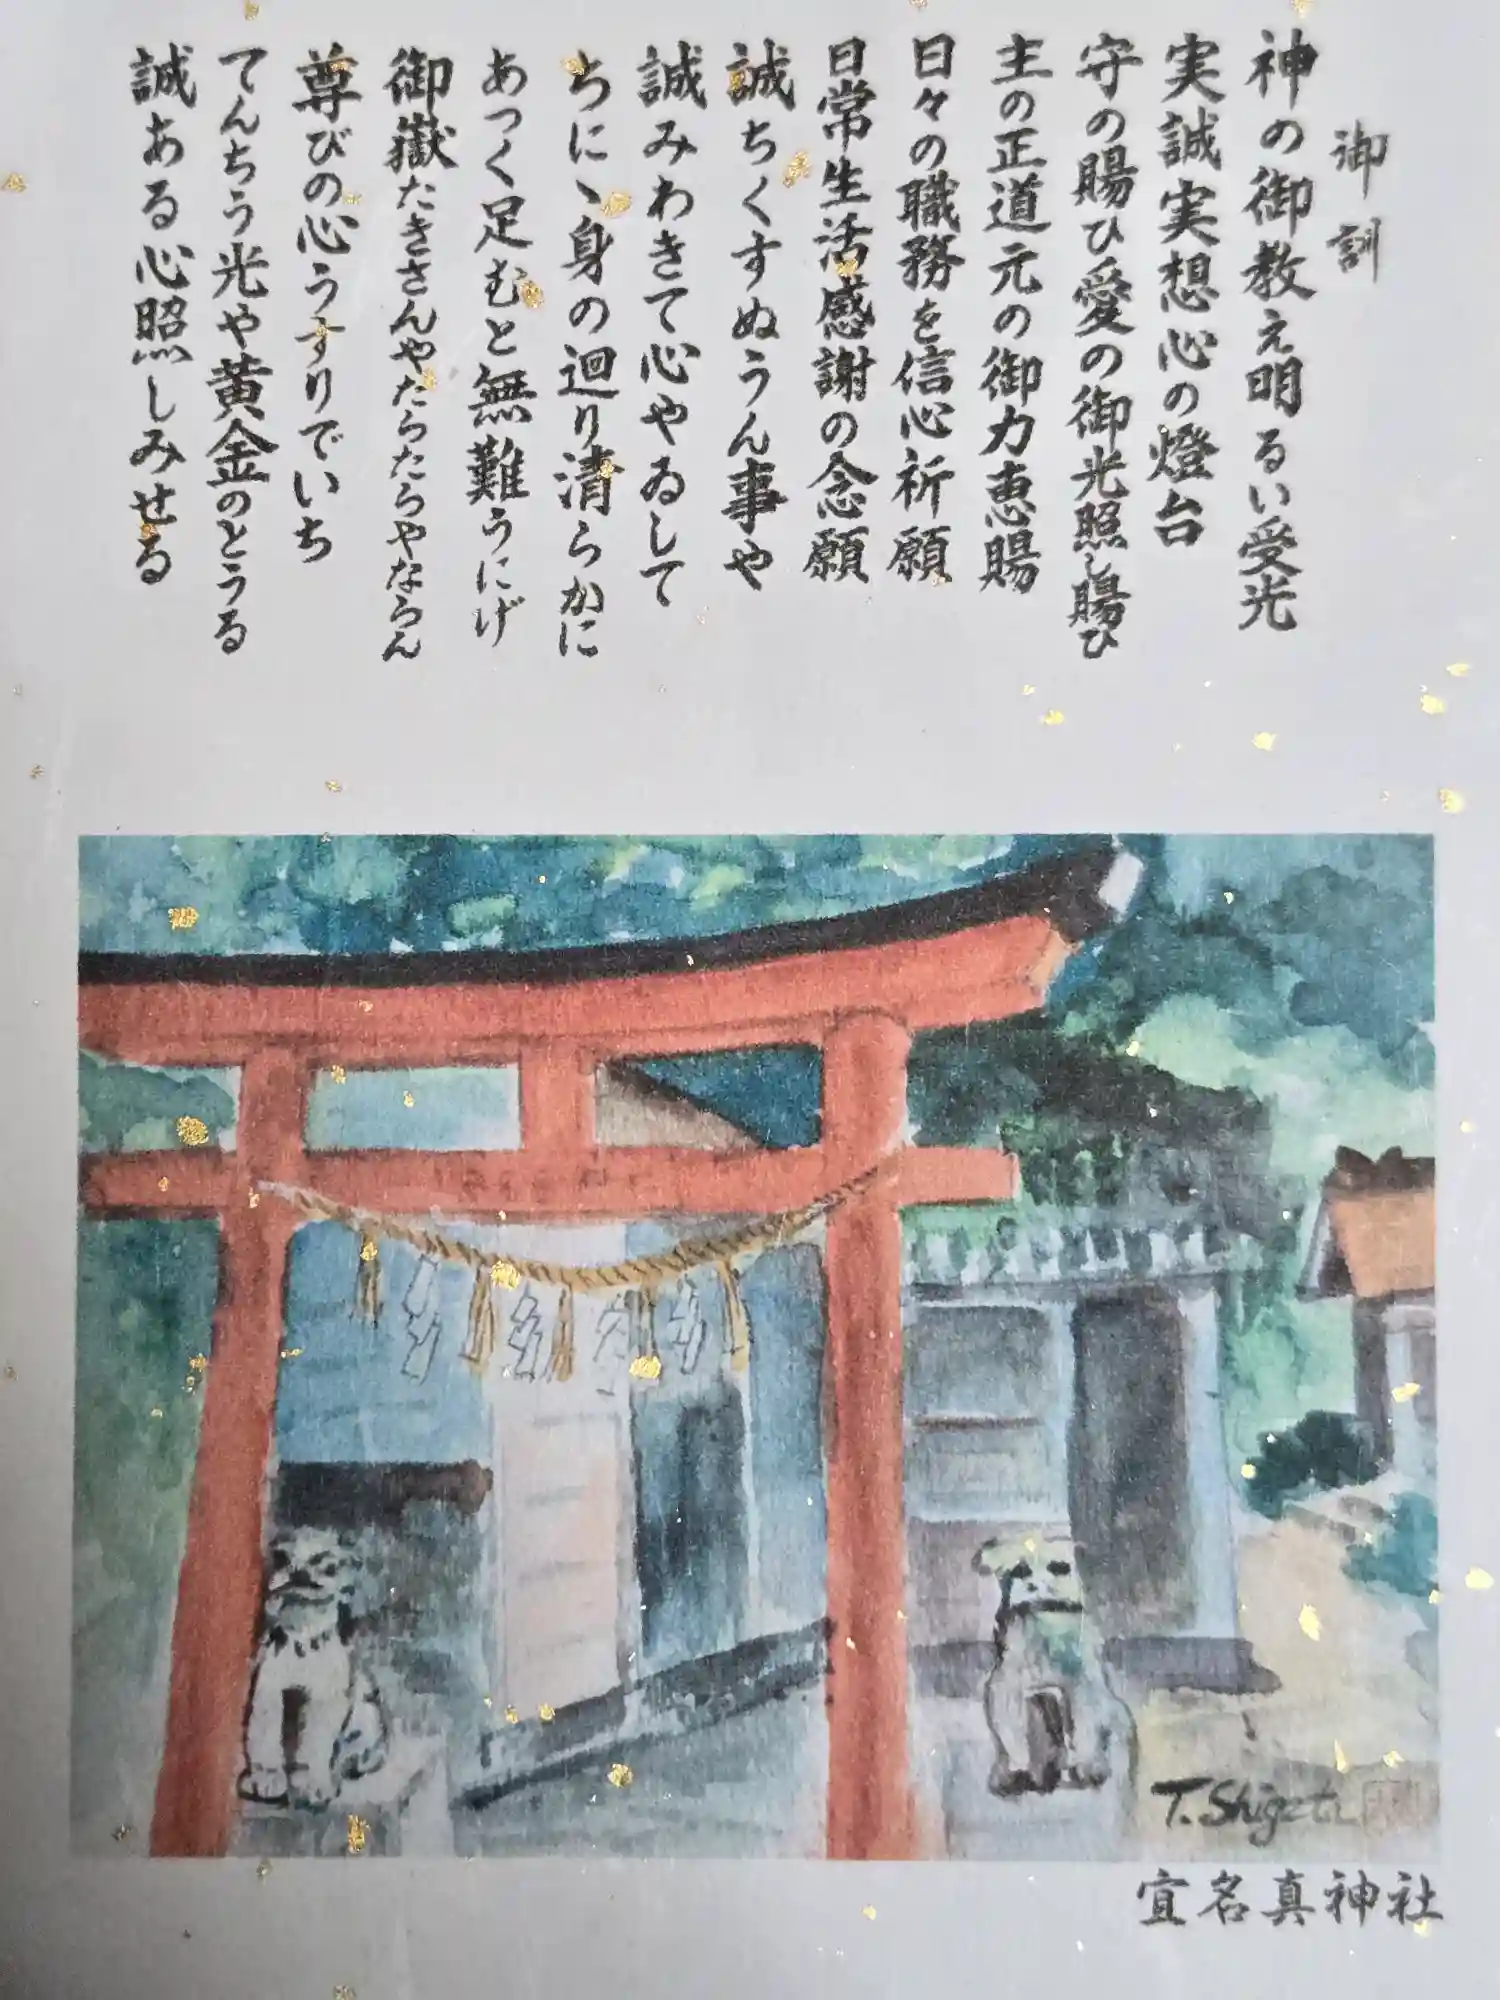 御訓
神の御教え明るい受光
実誠実想心の燈台
守の賜ひ愛の御光照し賜ひ
主の正道元の御力恵賜
日々の職務を信心祈願
日常生活感謝の念願
誠ちくすぬうん事や
誠みわきて心やゐして
ちにヽ身の廻り清らかに
あつく足むと無難うにげ
御嶽たきさんやたらたらやならん
尊びの心うすりでいち
てんちう光や黄金のとうる
誠ある心照しみせる
T. Shigeta
宜名真神社